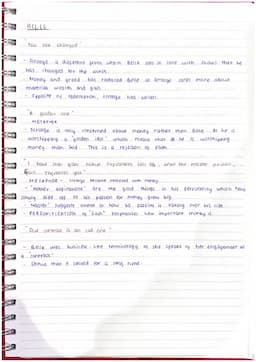 BELLE
"You are changed"
- Scrooge is different from when Belle was in love with. Shows that he has changed for the worst.
- Money and greed has replaced Belle as Scrooge cares more about material wealth and gain.
- Capable of redemption, Scrooge has fallen.
"A golden one"
- METAPHOR
- Scrooge is only concerned about money rather than Belle. As he is worshipping a "golden idol" which means that he is worshipping money than God. This is a rejection of
"I have seen your nobler aspirations fall off
until the master passion, Gain, engrosses you"
- METAPHOR - Scrooge become obsessed with money.
- "nobler aspirations" are the good things in his personality which they slowly as his passion for money grow big.
- "Master" suggests control or how his passion is taking over his life.
- PERSONIFICATION of "Gain" emphasises how important money is.
"Our contract is an old one"
- Belle uses business like terminology as she speaks of her engagement as a "contract"
- Shows that it lasted for a long time.